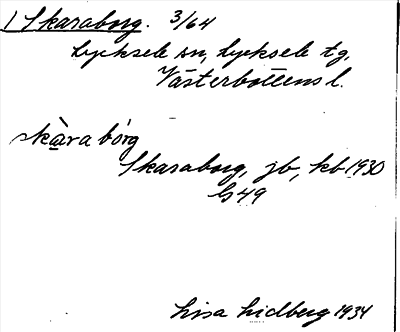 1 Skaraborg. 3/64
Lycksele sn, Lycksele tg,
Västerbottens l.
skàra bórg
Skaraborg, jb, kb 1930
G49
Lisa Lidberg 1934